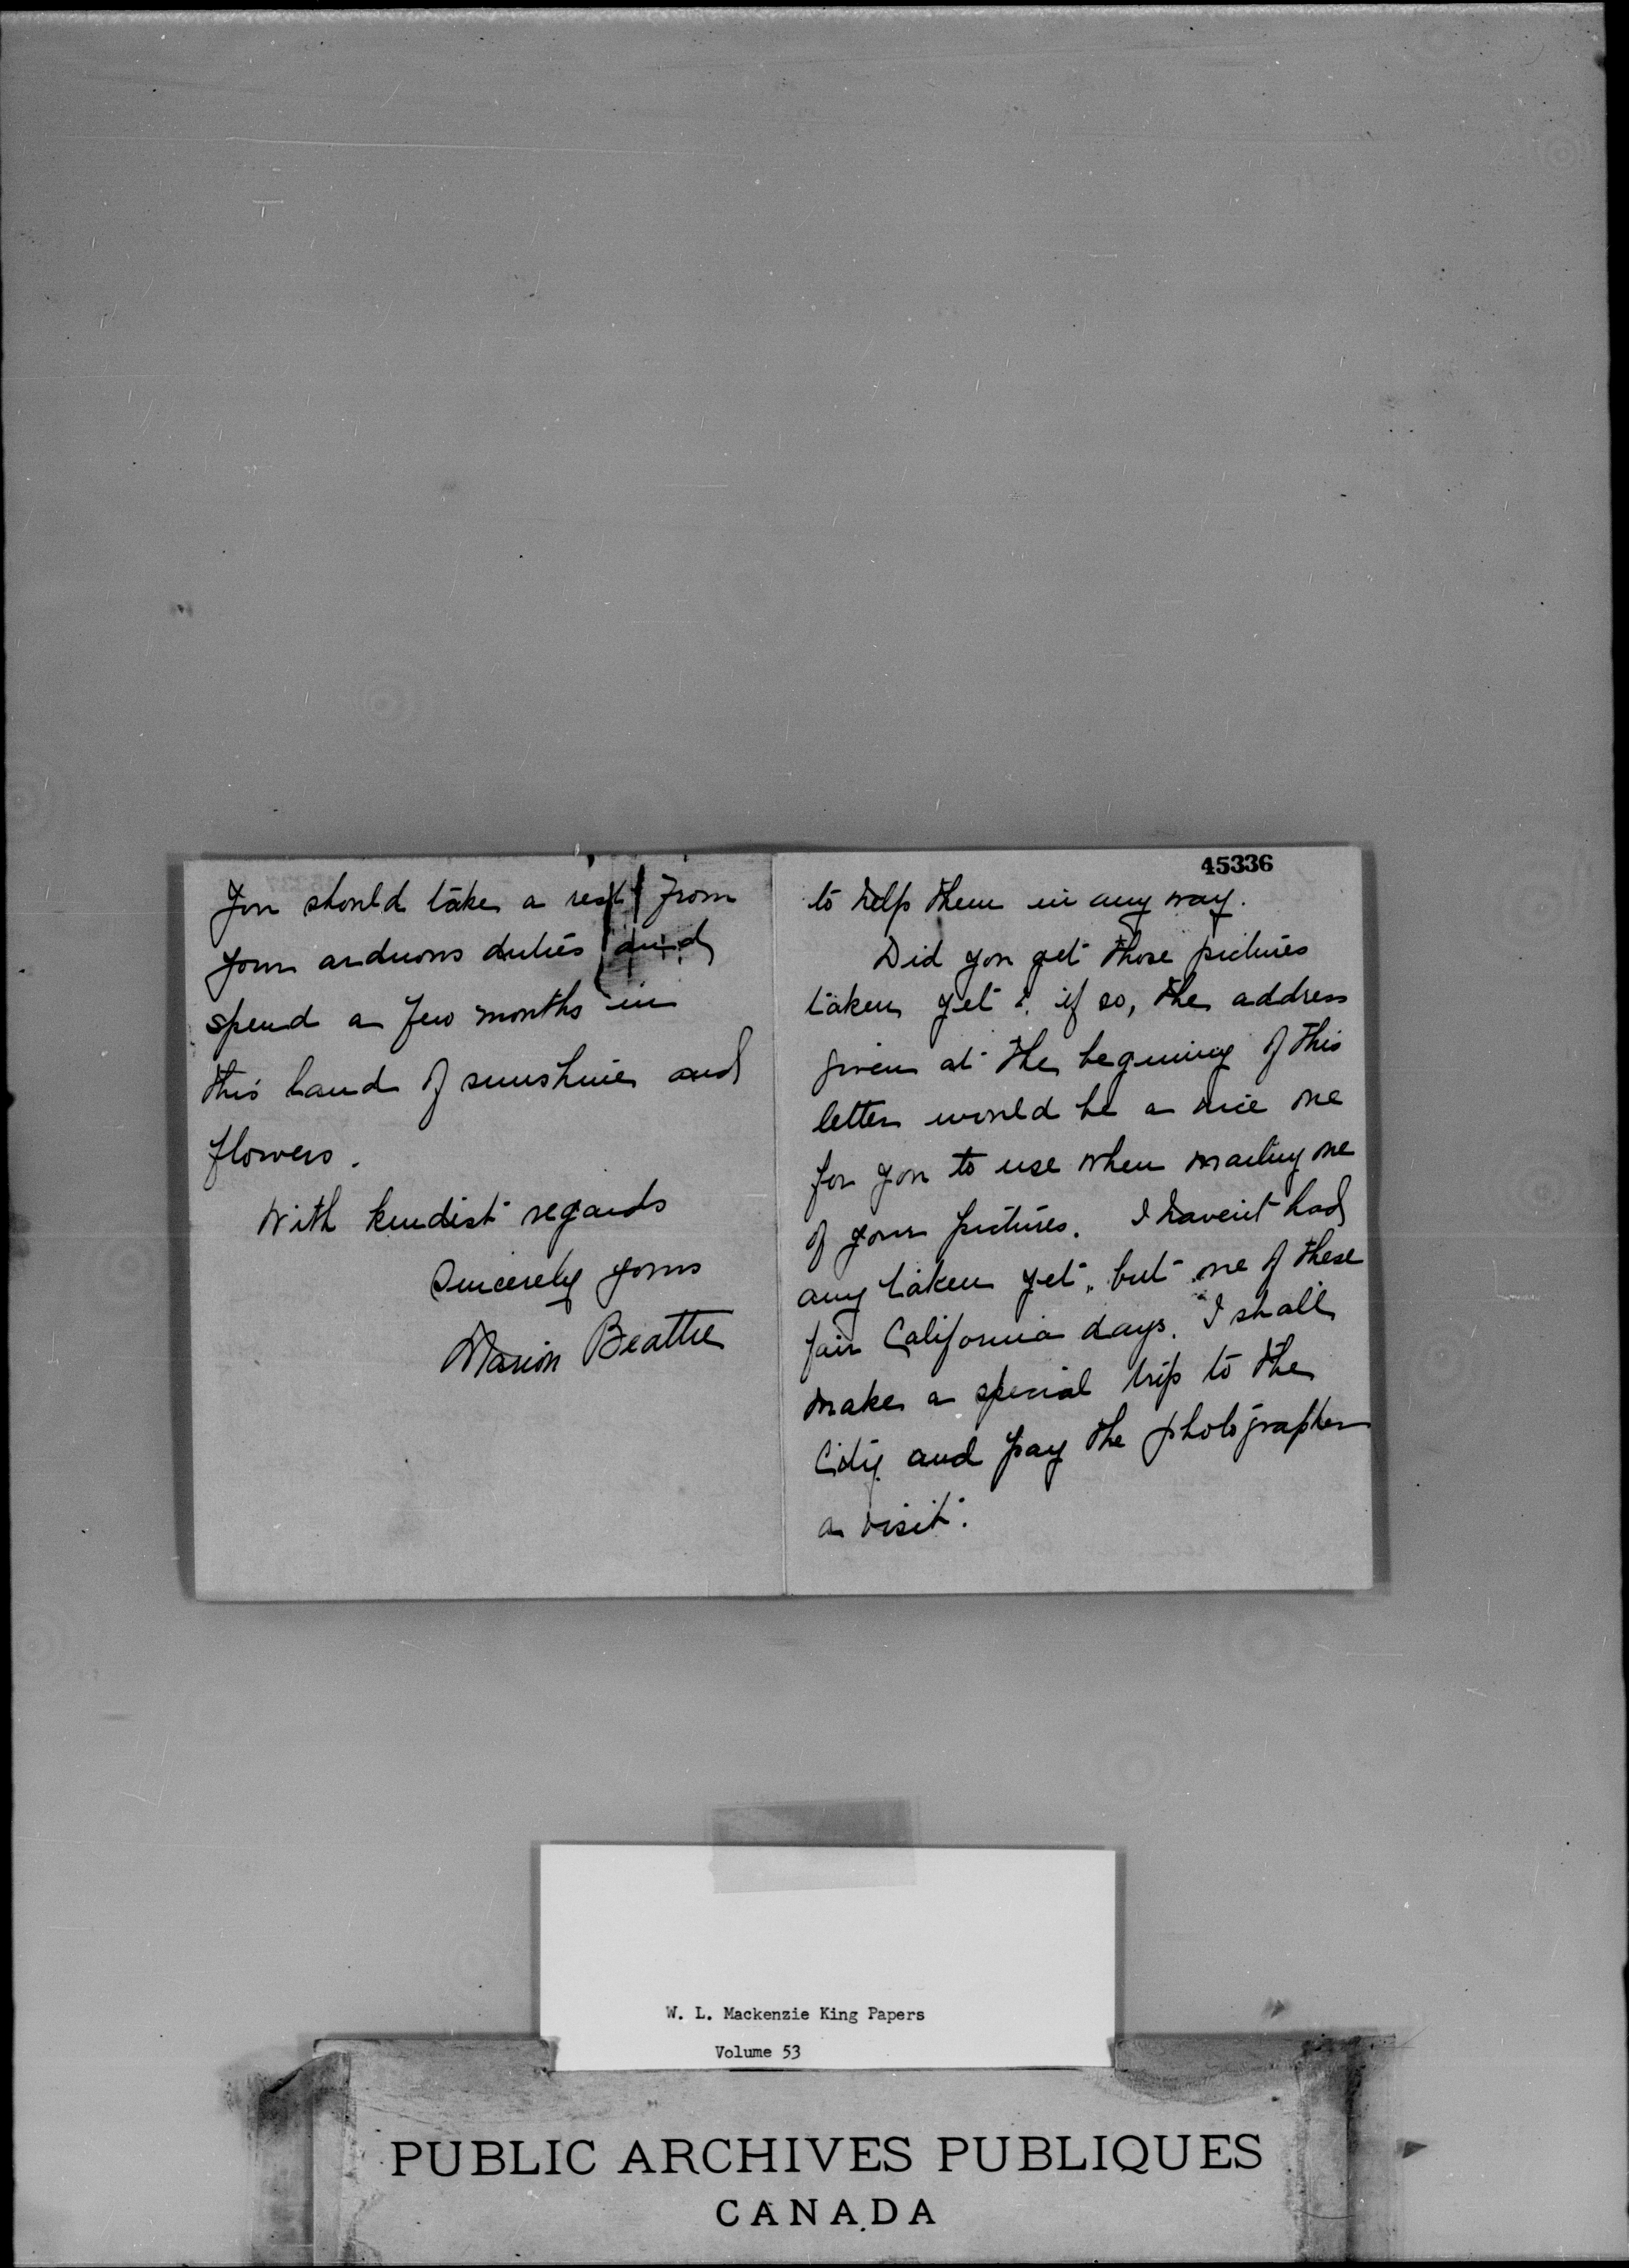 You should take a rest from
your arduous duties and
spend a few months in
this land of sunshine and
flowers.
With kindest regards
Sincerely yours
Marion Beattie
45336
to help them in any way.
Did you get those pictures
taken yet? if so, the address
given at the begining of this
letter would be a nice one
for you to use when mailing one
of your pictures. I haven't had
any taken yet, but one of these
fair California days, I shall
make a special trip to the
City and pay the photographer
a visit.
W. L. Mackenzie King Papers
Volume 53
PUBLIC ARCHIVES PUBLIQUES
CANADA